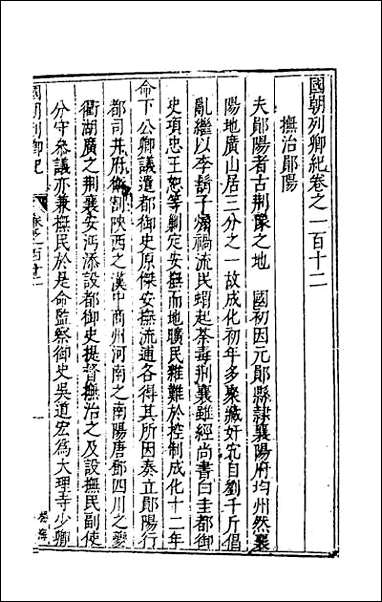 國朝列卿紀卷之一百十二
撫治鄖陽
夫鄖陽者古荆豫之地　國初因元鄖縣隸襄陽府均州然襄
陽地廣山居三分之一故成化初年多聚藏奸宄自劉千斤倡
亂繼以李鬍子煽禍流民蝟起荼毒荆襄雖經尚書白圭都御
史項忠王恕等勦定安撫而地曠民雜難於控制成化十二年
命下公卿議遣都御史原傑安撫流逋各得其所因奏立鄖陽行
都司并府衛割陝西之漢中商州河南之南陽唐鄧四川之夔
衝湖廣之荆襄安沔添設都御史提督撫治之及設撫民副使
分守叅議亦兼撫民於是命監察御史吳道宏為大理寺少卿
國朝列卿紀
卷之一百十二
一